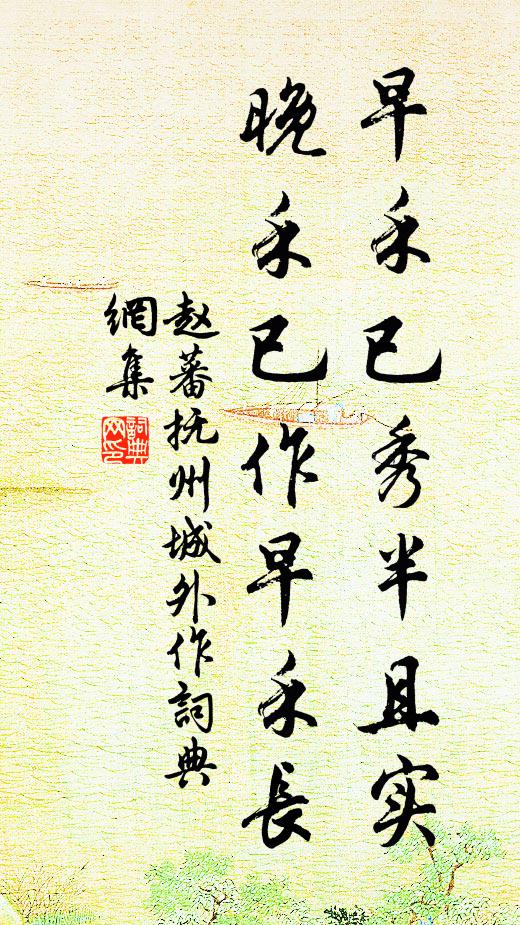 早禾已秀半且实
晚禾已作早禾長
赵蕃抚州城外作詞典
網集
詞典
网印